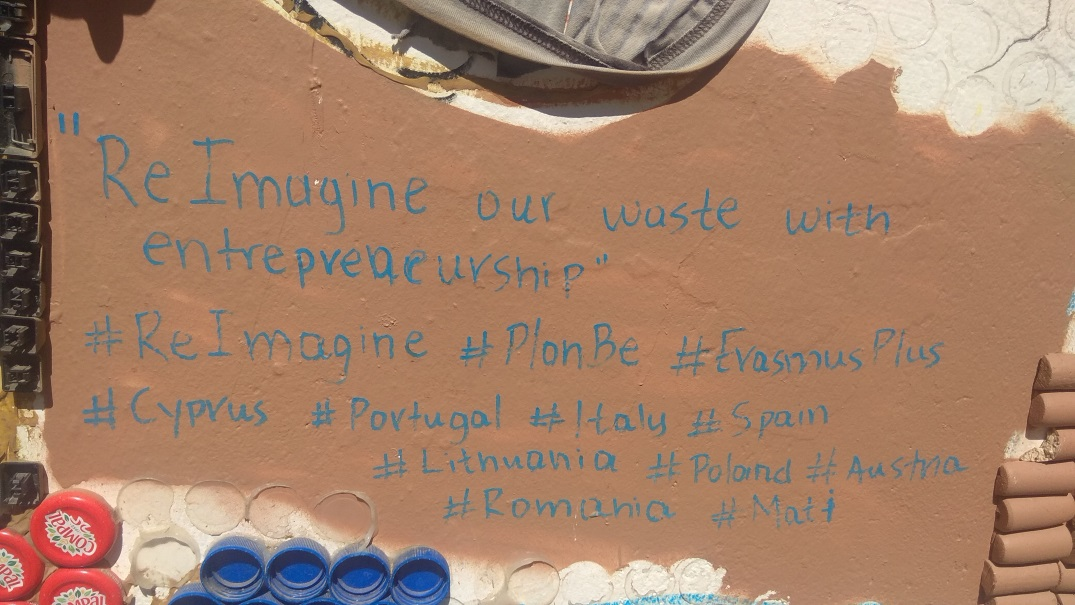 "ReImagine our waste with
entrepreneurship"
#ReImagine #PlanBe #ErasmusPlus
#Cyprus #Portugal #Italy #Spain
#Lithuania #Poland #Austria
#Romania #Mati
COMPAL